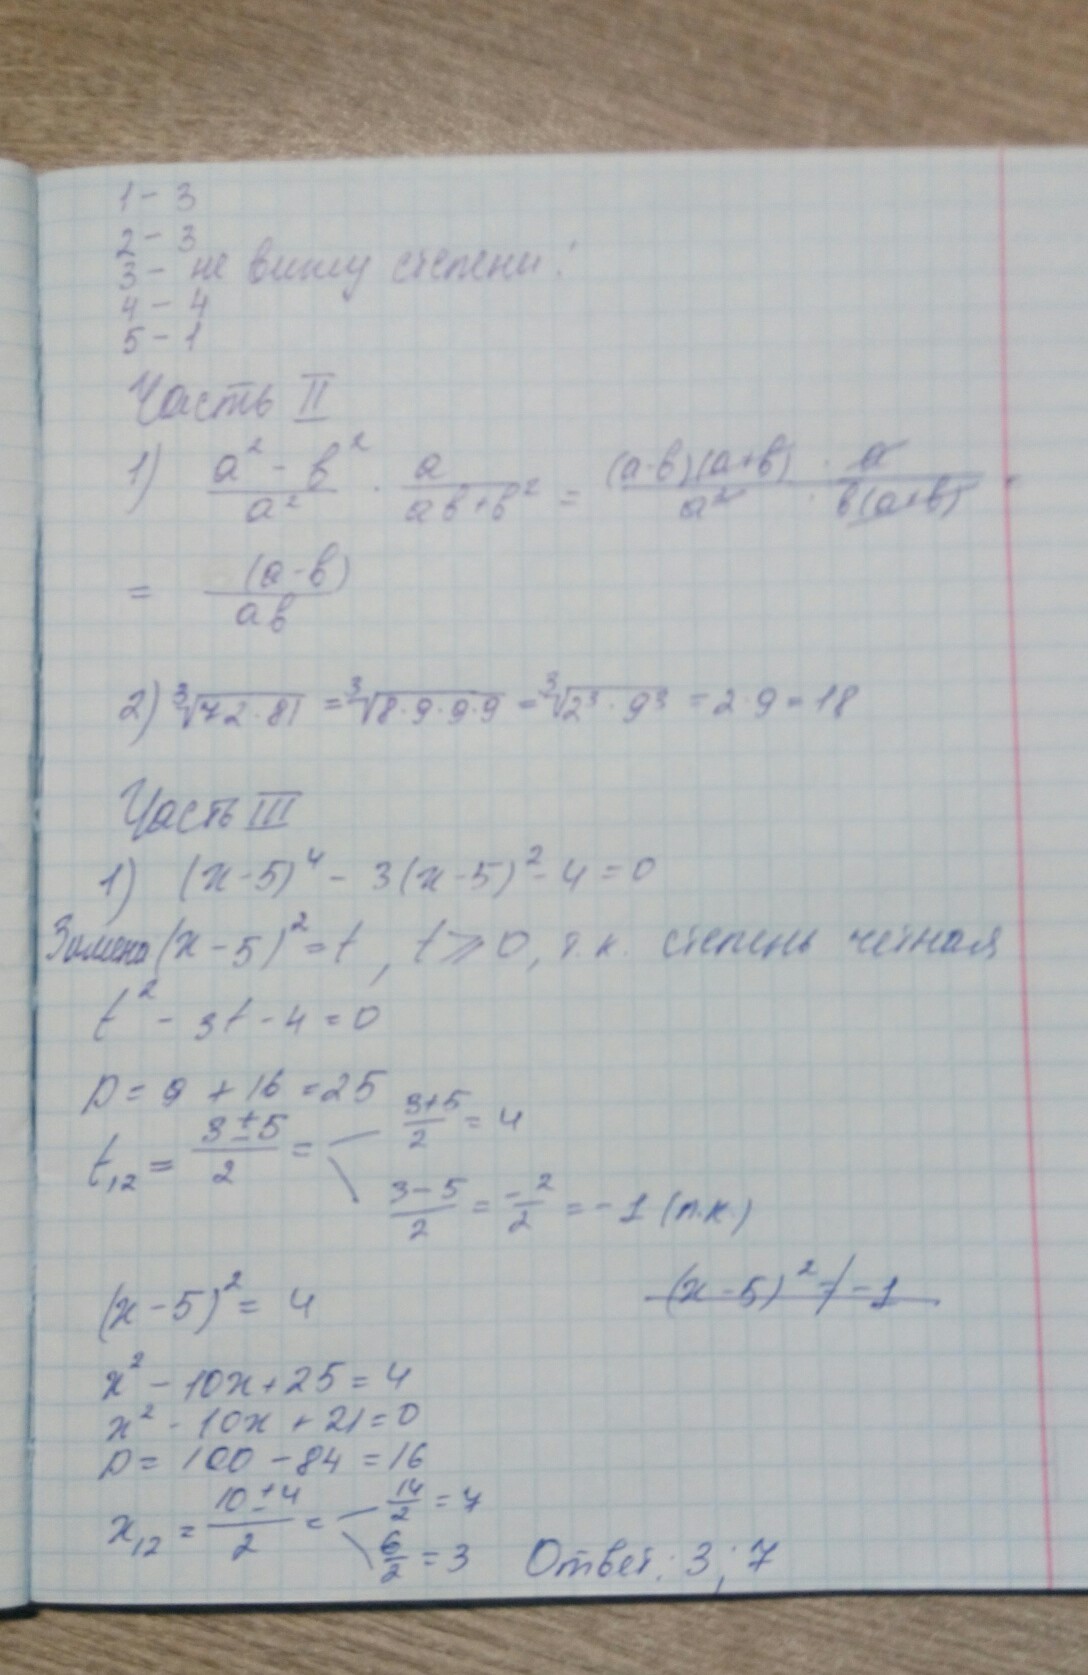 1 - 3
2 - 3
3 - не вижу степени!
4 - 4
5 - 1
Часть II
1) (a² - b²)/a² · a/(ab+b²) = ((a-b)(a+b) · a)/(a² · b(a+b)) =
= (a-b)/ab
2) ³√(72·81) = ³√(8·9·9·9) = ³√(2³·9³) = 2·9 = 18
Часть III
1) (x-5)⁴ - 3(x-5)² - 4 = 0
Замена (x-5)² = t, t ⩾ 0, т.к. степень четная
t² - 3t - 4 = 0
D = 9 + 16 = 25
t₁,₂ = (3±5)/2 = (3+5)/2 = 4
(3-5)/2 = -2/2 = -1 (п.к.)
(x-5)² = 4 (x-5)² ≠ -1
x² - 10x + 25 = 4
x² - 10x + 21 = 0
D = 100 - 84 = 16
x₁,₂ = (10±4)/2 = 14/2 = 7
6/2 = 3 Ответ: 3; 7